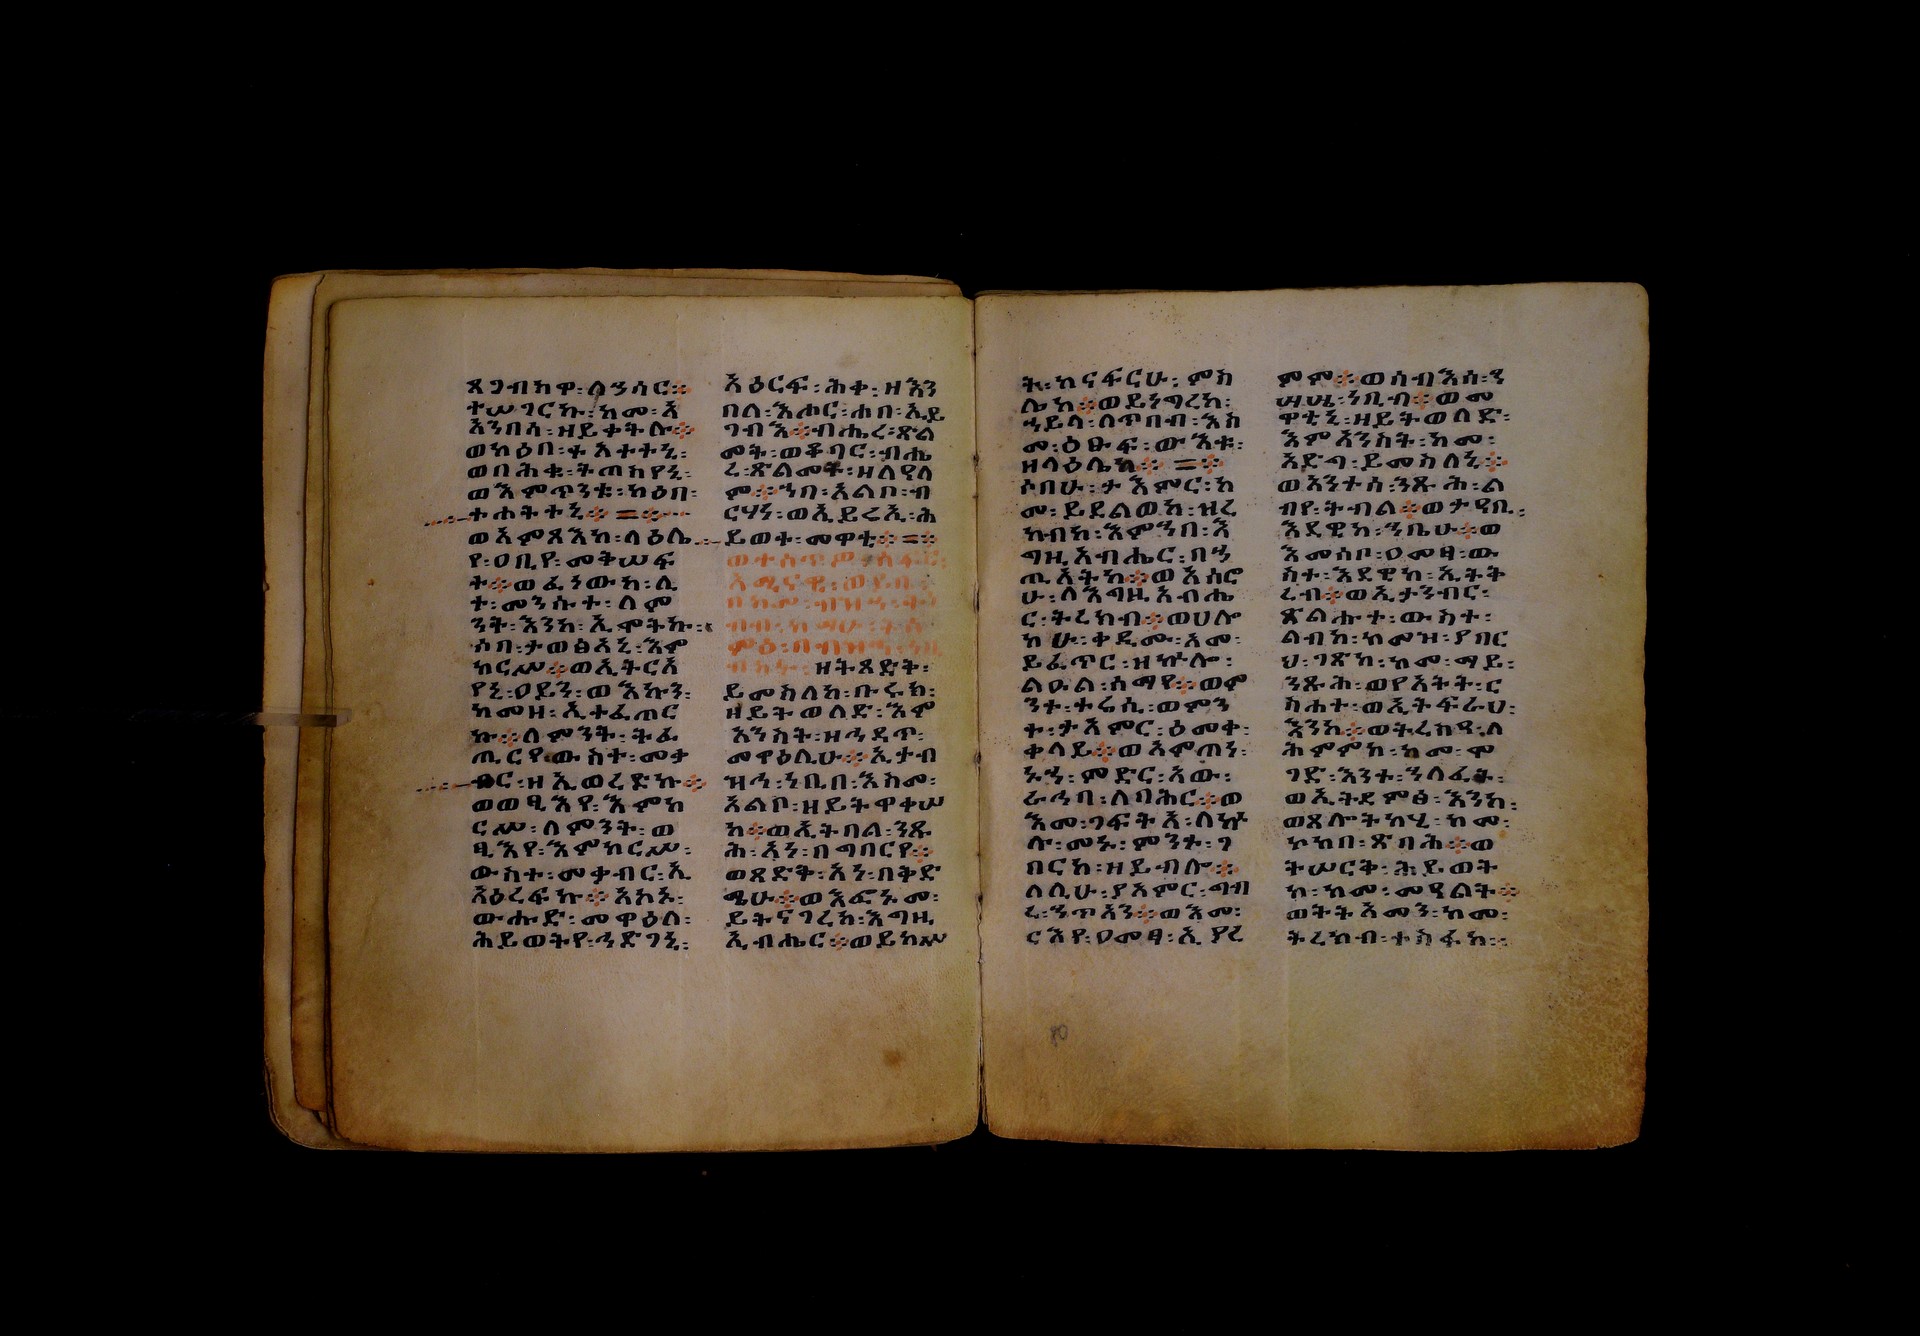 ጸገብከዋ፡ለኀሳር።
ተሠገርኩ፡ከመ፡አ
አንበሳ፡ዘይቀትሎ።
ወካዕበ፡ቀአተተኒ፡
ወበሕቁ፡ትጠከየኒ፡
ወእምጥንቱ፡ካዕበ፡
ተሐትተኒ።=።
ወአምጻእከ፡ላዕሌ
የ፡ዐቢየ፡መቅሠፍ
ተ።ወፈነውከ፡ሊ
ተ፡መንሱተ፡ለም
ንት፡እንከ፡ኢሞትኩ፡
ሶበ፡ታወፅአኒ፡እም
ከርሥ።ወኢትርእ
የኒ፡ዐይን፡ወእኩን፡
ከመዘ፡ኢተፈጠር
ኩ።ለምንት፡ትፈ
ጢርየ፡ውስተ፡መቃ
ብር፡ዘኢወረድኩ።
ወወፂእየ፡እምከ
ርሥ፡ለምንት፡ወ
ፂእየ፡እምከርሥ፡
ውስተ፡መቃብር፡ኢ
አዕረፍኩ።አኮኑ፡
ውሑድ፡መዋዕለ፡
ሕይወትየ፡ኅድገኒ፡
አዕርፍ፡ሕቀ፡ዘእን
በለ፡እሖር፡ሐበ፡ኢይ
ገብእ።ብሔረ፡ጽል
መት፡ወቆባር፡ብሔ
ረ፡ጽልመት፡ዘለዓለ
ም።ኀበ፡አልቦ፡ብ
ርሃነ፡ወኢይሬኢ፡ሕ
ይወተ፡መዋቲ።=።
ዘትጸድቅ፡
ይመስለከ፡ቡሩክ፡
ዘይትወለድ፡እም
አንስት፡ዘኅዳጥ፡
መዋዕሊሁ።ኢታብ
ዝኅ፡ነቢበ፡እስመ፡
አልቦ፡ዘይትዋቀሠ
ከ።ወኢትበል፡ንጹ
ሕ፡አነ፡በግባርየ።
ወጻድቅ፡አነ፡በቅድ
ሜሁ።ወእፎኑ፡መ፡
ይትናገረከ፡እግዚ
ኢብሔር።ወይከሥ
ት፡ከናፍርሁ፡ምስ
ሌከ።ወይነግረከ፡
ኃይለ፡ለጥበብ፡እስ
መ፡ዕፁፍ፡ውእቱ፡
ዘላዕሌከ።=።
ሶበሁ፡ታእምር፡ከ
መ፡ይደልወከ፡ዝረ
ከብከ፡እምኀበ፡እ
ግዚአብሔር፡በኃ
ጢአትከ።ወእሰሮ
ሁ፡ለእግዚአብሔ
ር፡ትረክብ።ወሀሎ
ከሁ፡ቀዲሙ፡አመ፡
ይፈጥር፡ዘኵሎ፡
ልዑል፡ሰማየ።ወም
ንተ፡ተሬሲ፡ወምን
ተ፡ታአምር፡ዕመቀ፡
ቀላይ።ወእምጠነ፡
ኑኀ፡ምድር፡አው፡
ራኅባ፡ለባሕር።ወ
እመ፡ገፍትአ፡ለኵ
ሎ፡መኑ፡ምንተ፡ገ
በርከ፡ዘይብሎ።
ለሊሁ፡ያአምር፡ግብ
ረ፡ኀጥአን።ወእመ፡
ርእየ፡ዐመፃ፡ኢያረ
ምም።ወሰብእሰ፡ን
ሣሔ፡ነቢብ።ወመ
ዋቲኒ፡ዘይትወለድ፡
እምአንስት፡ከመ፡
አድግ፡ይመስለኒ።
ወአንተሰ፡ንጹሕ፡ል
ብየ፡ትብል።ወታዓቢ፡
እደዊከ፡ኀቤሁ።ወ
እመሰቦ፡ዐመፃ፡ው
ስተ፡እደዊከ፡ኢትት
ረብ።ወኢታንብር፡
ጽልሑተ፡ውስተ፡
ልብከ፡ከመዝ፡ያበር
ህ፡ገጽከ፡ከመ፡ማይ፡
ንጹሕ፡ወየአትት፡ር
ስሐተ፡ወኢትፍራህ፡
እንከ።ወትረክዓ፡ለ
ሕምምከ፡ከመ፡ሞ
ገድ፡እንተ፡ኀለፈት፡
ወኢትደምፅ፡እንከ፡
ወጸሎትከሂ፡ከመ፡
ኮከበ፡ጽባሕ።ወ
ትሠርቅ፡ሕይወት
ከ፡ከመ፡መዓልት።
ወትትአመን፡ከመ፡
ትረክብ፡ተስፋከ።